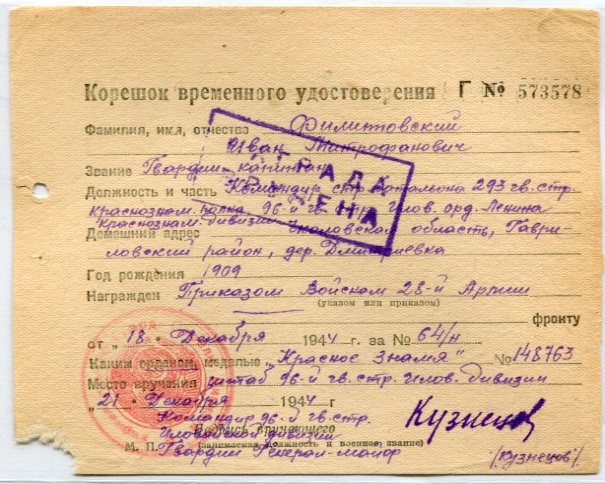 Корешок временного удостоверения Г № 573578
Фамилия, имя, отчество Филитовский
Иван Митрофанович
Звание Гвардии капитан
Должность и часть Командир стр. батальона 293 гв. стр.
краснознам. полка 96-й гв. стр. Илов. орд. Ленина
краснознам. дивизии
Домашний адрес Чкаловская область, Гаври-
ловский район, дер. Дмитриевка
Год рождения 1909
Награжден Приказом Войскам 28-й Армии
(указом или приказом)
фронту
от „18" Декабря 1944 г. за № 64/н
Каким орденом, медалью „Красное Знамя" № 148763
Место вручения штаб 96-й гв. стр. Илов. дивизии
„21" Декабря 1944 г
Командир 96-й гв. стр.
Иловайской дивизии
Подпись вручающего
(занимаемая должность и военное звание)
М. П. Гвардии Генерал-майор
Кузнецов
(Кузнецов)
НАГРАДА
ВРУЧЕНА